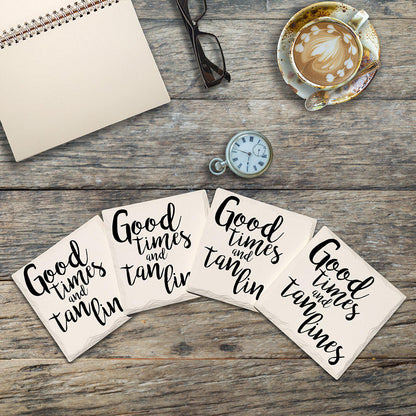 Good
times
and
tan lin
Good
times
and
tan lin
Good
times
and
tan lin
Good
times
and
tan
lines